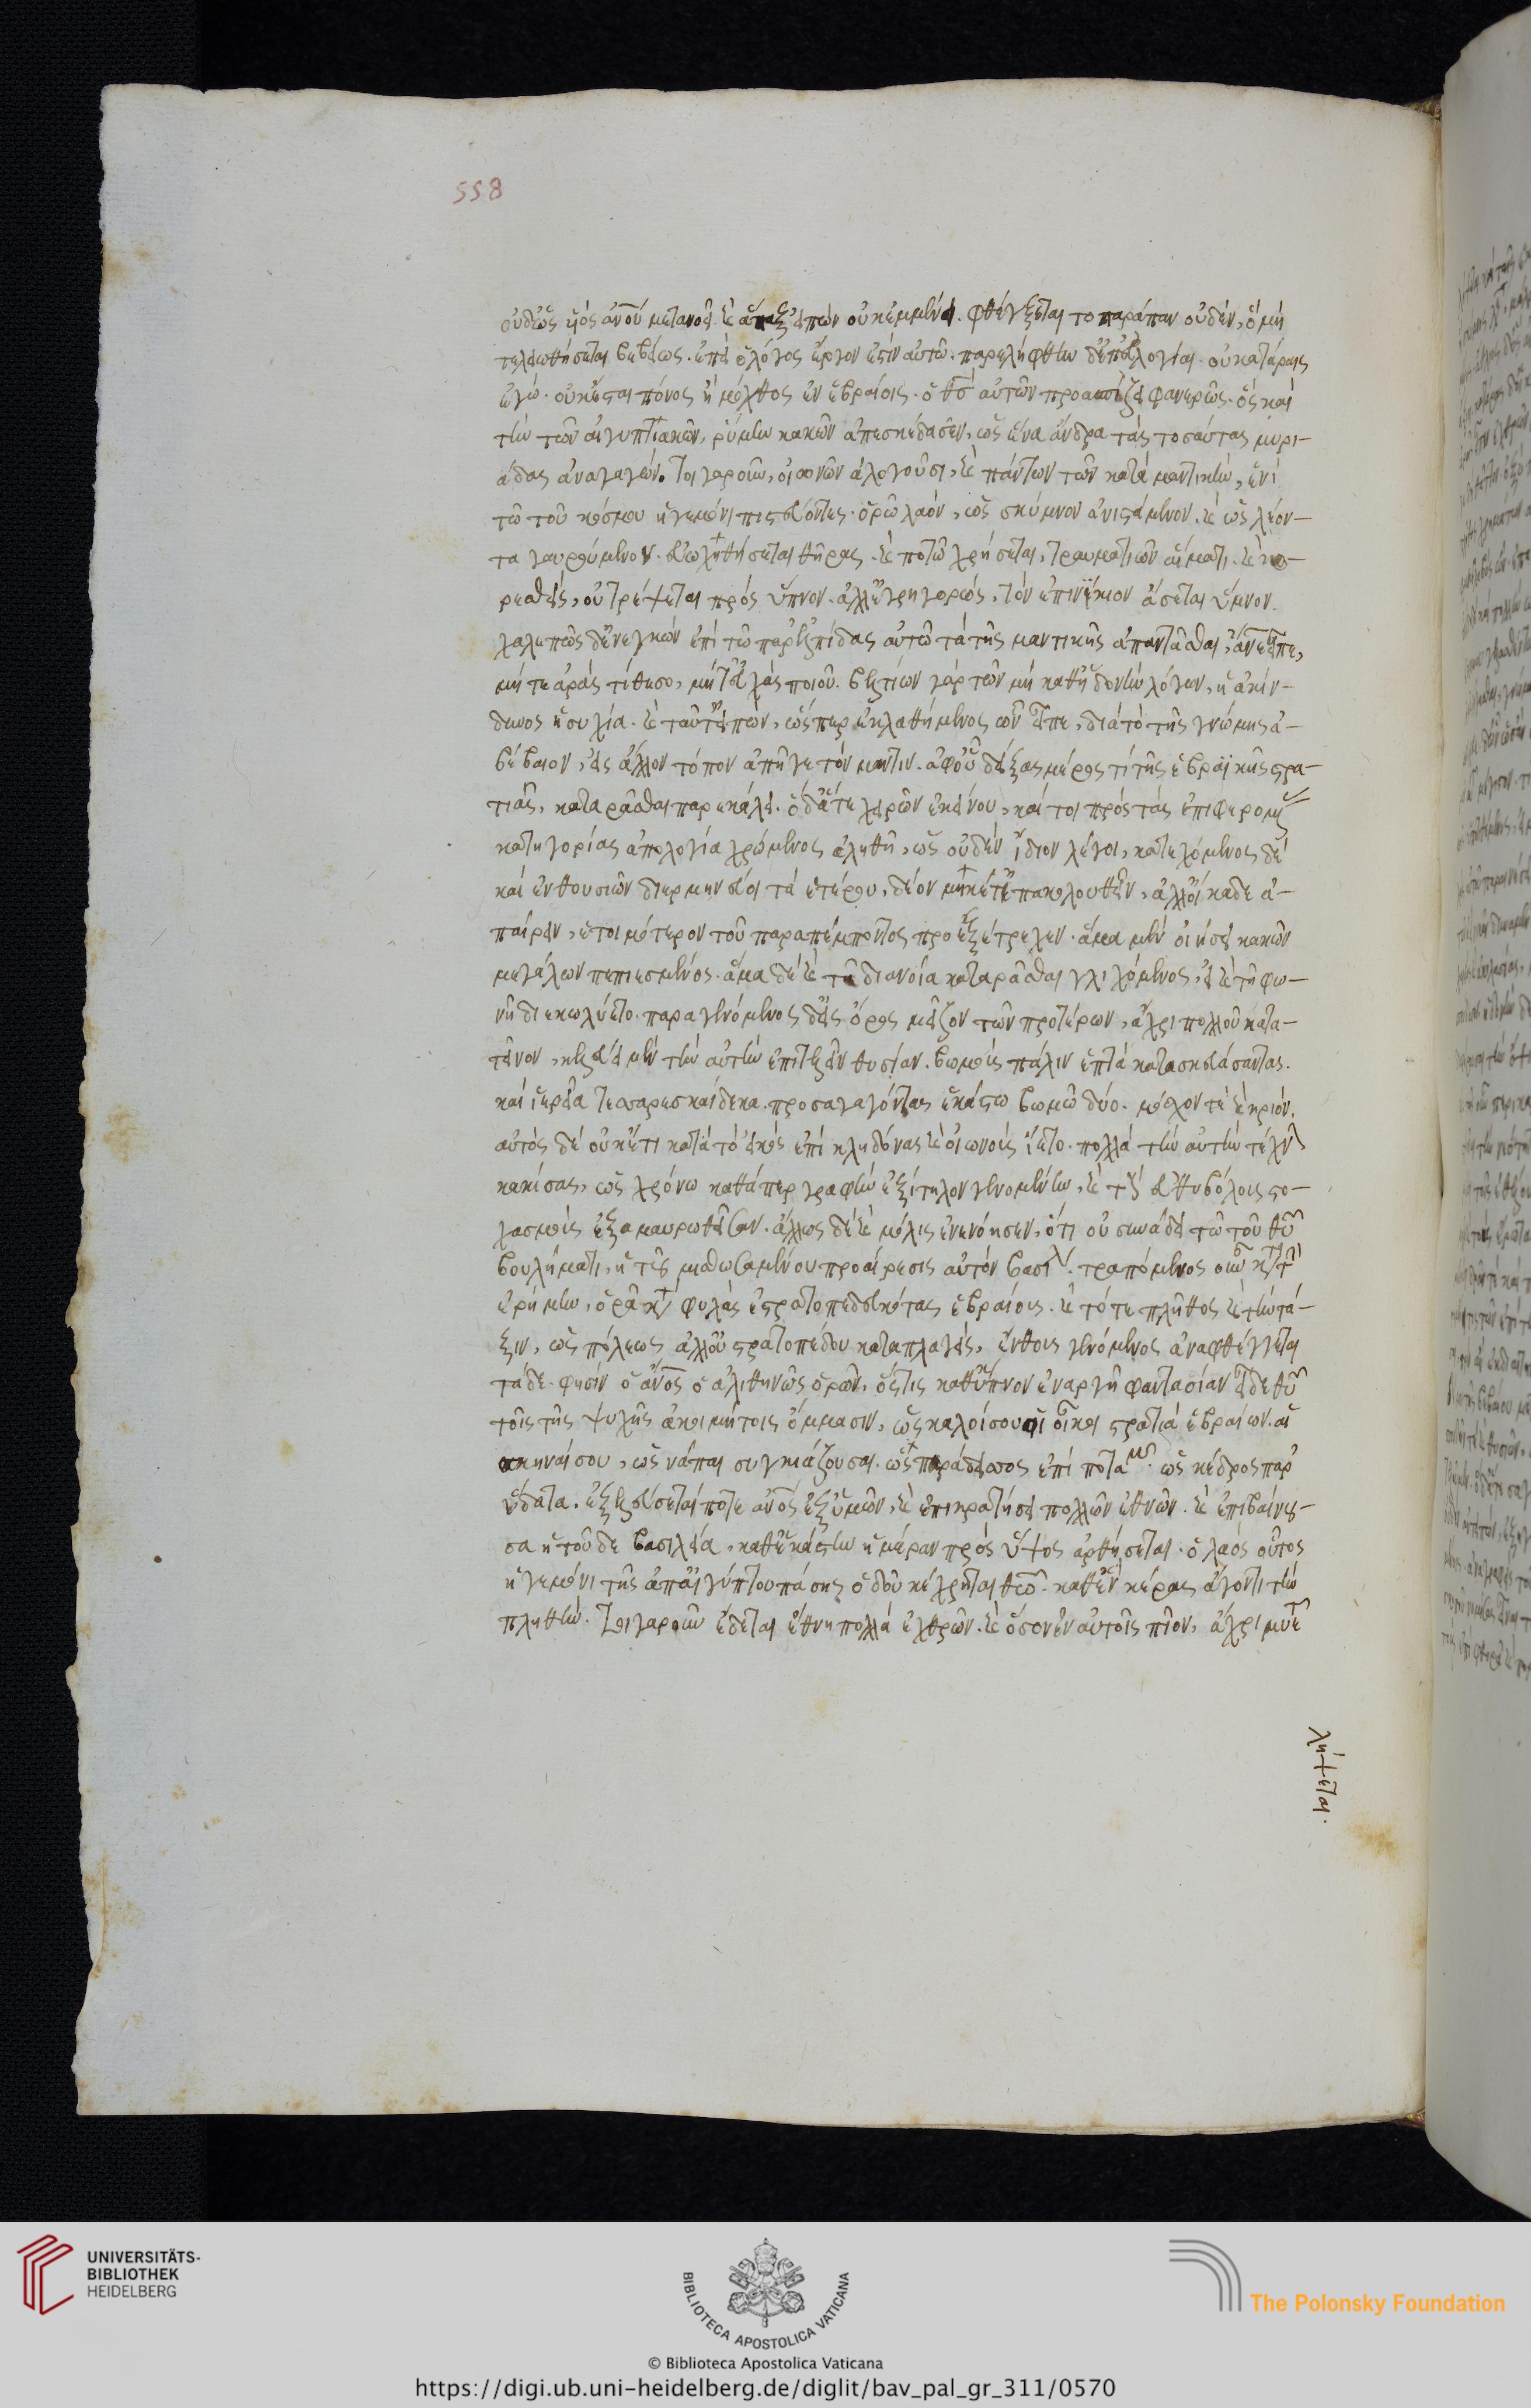 οὐδ' ὡς υἱὸς ἀνοῦ μετανοεῖ καὶ ἅπαξ εἰπὼν οὐκ ἐμμένει. φθέγξεται το παράπαν οὐδὲν, ὃ μὴ
τελειωθήσεται βεβαίως. ἐπεὶ ὁ λόγος ἔργον ἐστὶν αὐτῶ. παρελήφθην δ' ἐπ' εὐλογίαι. οὐ κατάραις
ἐγώ. οὐκ ἔσται πόνος ἢ μόχθος ἐν ἑβραίοις. ὁ θσ αὐτῶν προασπίζει φανερῶς. ὃς καὶ
τὴν τῶν αἰγυπτιακῶν, ῥύμην κακῶν ἀπεσκέδασεν, ὡς ἕνα ἄνδρα τὰς τοσαύτας μυρι-
άδας ἀναγαγών. τοι γαροῦν, οἰωνῶν ἀλογοῦσι, καὶ πάντων τῶν κατὰ μαντικὴν, ἑνὶ
τῶ τοῦ κόσμου ἡγεμόνι πιστεύοντες. ὁρῶ λαὸν, ὡς σκύμνον ἀνιστάμενον. καὶ ὡς λέον-
τα γαυρούμενον. εὐωχηθήσεται θήρας. καὶ ποτῶ χρήσεται, τραυματιῶν αἵματι. καὶ κο-
ρεσθεὶς, οὐ τρέψεται πρὸς ὕπνον. ἀλλ' ἐγρηγορὼς, τὸν ἐπινίκιον ἄσεται ὕμνον.
χαλεπῶς δ' ἐνεγκὼν ἐπὶ τῶ παρ' ἐλπίδας αὐτῶ τὰ τῆς μαντικῆς ἀπαντᾶσθαι, ἄνε εἶπε,
μήτε ἀρὰς τίθεσο, μήτ' εὐχὰς ποιοῦ. βελτίων γὰρ τῶν μὴ καθ' ἡδονὴν λόγων, ἡ ἀκίν-
δυνος ἡσυχία. καὶ ταῦτ' εἰπὼν, ὥσπερ ἐκλαθόμενος ὧν εἶπε, διὰ τὸ τῆς γνώμης ἀ-
βέβαιον, εἰς ἄλλον τόπον ἀπῆγε τὸν μάντιν. ἀφ' οὗ δείξας μέρος τί τῆς ἑβραϊκῆς στρα-
τιᾶς, καταρᾶσθαι παρεκάλει. ὁ δ' ἅτε χείρων ἐκείνου, καίτοι πρὸς τὰς ἐπιφερομένας
κατηγορίας ἀπολογία χρώμενος ἀληθῆ, ὡς οὐδὲν ἴδιον λέγοι, κατεχόμενος δὲ
καὶ ἐνθουσιῶν διερμηνεύοι τὰ ἑτέρου, δέον μηκέτ' ἐπακολουθεῖν, ἀλλ' οἴκαδε ἀ-
παίρειν, ἑτοιμότερον τοῦ παραπέμποντος προεξέτρεχεν. ἅμα μὲν οἰήσει κακῶν
μεγάλων πεπιεσμένος. ἅμα δὲ καὶ τῆ διανοία καταρᾶσθαι γλιχόμενος, εἰ καὶ τῆ φω-
νῆ διεκωλύετο. παραγενόμενος δ' εἰς ὄρος μεῖζον τῶν προτέρων, ἄχρι πολλοῦ κατα-
τεῖνον, κελεύει μὲν τὴν αὐτὴν ἐπιτελεῖν θυσίαν. βωμοὺς πάλιν ἑπτὰ κατασκευάσαντας.
καὶ ἱερεῖα τεσσαρεσκαίδεκα προσαγαγόντας ἑκάστω βωμῶ δύο. μόσχον τὲ καὶ κριόν.
αὐτὸς δὲ οὐκέτι κατὰ τὸ εἰκὸς ἐπὶ κληδόνας καὶ οἰωνοὺς ἵετο. πολλὰ τὴν αὐτὴν τέχνην
κακίσας, ὡς χρόνω καθάπερ γραφὴν ἐξίτηλον γενομένην, καὶ τὰς εὐθυβόλους στο-
χασμοὺς ἐξαμαυρωθεῖσαν. ἄλλως δὲ καὶ μόλις ἐνενόησεν, ὅτι οὐ συνάδει τῶ τοῦ θυ
βουλήματι, ἡ τοῦ μισθωσαμένου προαίρεσις αὐτὸν βασιλ. τραπόμενος οὖν κατὰ τὴν
ἐρήμην, ὁρᾶ κατὰ φυλὰς ἐστρατοπεδευκότας ἑβραίους. καὶ τό τε πλῆθος καὶ τὴν τά-
ξιν, ὡς πόλεως ἀλλ' οὐ στρατοπέδου καταπλαγεὶς, ἔνθους γενόμενος ἀναφθέγγεται
τάδε. φησὶν ὁ ἄνος ὁ ἀληθινῶς ὁρῶν, ὅστις καθ' ὕπνον ἐναργῆ φαντασίαν εἶδε θυ
τοῖς τῆς ψυχῆς ἀκοιμήτοις ὄμμασιν, ὡς καλοί σου οἱ οἶκοι στρατιὰ ἑβραίων. αἱ
σκηναί σου, ὡς νάπαι συσκιάζουσαι. ὡς παράδεισος ἐπὶ ποταμοῦ. ὡς κέδρος παρ'
ὕδατα. ἐξελεύσεταί ποτε ἄνος ἐξ ὑμῶν, καὶ ἐπικρατήσει πολλῶν ἐθνῶν. καὶ ἐπιβαίνου-
σα ἡ τοῦδε βασιλεία, καθ' ἑκάστην ἡμέραν πρὸς ὕψος ἀρθήσεται. ὁ λαὸς οὗτος
ἡγεμόνι τῆς ἀπ' αἰγύπτου πάσης ὁδοῦ κέχρηται θεῶ. καθ' ἓν κέρας ἄγοντι τὴν
πληθὺν. τοιγαροῦν ἔδεται ἔθνη πολλὰ ἐχθρῶν. καὶ ὅσον ἐν αὐτοῖς πῖον, ἄχρι μυε
λήψεται.
558
UNIVERSITÄTS-
BIBLIOTHEK
HEIDELBERG
BIBLIOTECA APOSTOLICA VATICANA
The Polonsky Foundation
© Biblioteca Apostolica Vaticana
https://digi.ub.uni-heidelberg.de/diglit/bav_pal_gr_311/0570